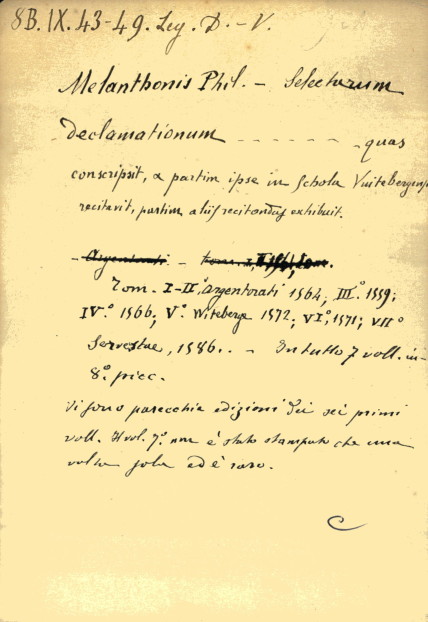 8B.IX.43-49. Leg. D.-V.
Melanthonis Phil. - Selectarum
Declamationum - - - - - - - quas
conscripsit, & partim ipse in Schola Vuitebergensi
recitavit, partim aliis recitandas exhibuit.
- Argentorati - Tom. I,
Tom. I-II°, Argentorati 1564; III.° 1559;
IV.° 1566; V.° Witeberge 1572; VI°, 1571; VII°
Servestae, 1586. - In tutto 7 voll. in-
8.° picc.
Vi sono parecchie edizioni dei sei primi
voll. Il vol. 7.° non è stato stampato che una
volta sola ed è raro.
C